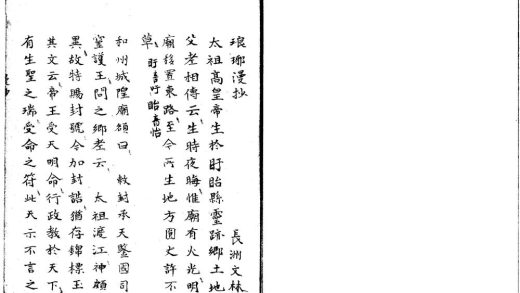 琅琊漫抄
長洲文林
太祖高皇帝生於盱眙縣靈跡鄉土地
父老相傳云生時夜晦惟廟有火光明
廟後置東路至今所生地方圓丈許不
草盱音吁眙音怡
和州城隍廟額曰　敕封承天鑒國司
室護王問之鄉老云　太祖渡江神顯
異故特賜封號今加封誥猶存錦標玉
其文云帝王受天明命行政教於天下
有生聖之瑞受命之符此天示不言之